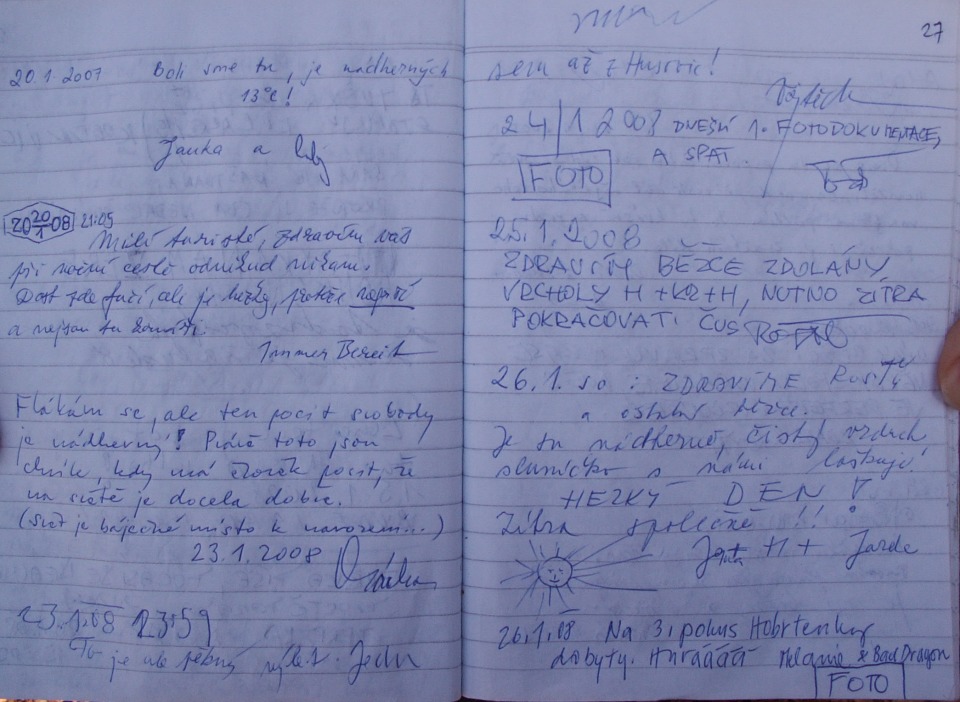 20.1.2007 Boli sme tu, je nádherných
13°C!
Janka a
20 20/1 08 21:05
Milí turisté, zdravím vás
při noční cestě odnikud nikam.
Dost zde fučí, ale je hezky, protože neprší
a nejsou tu komáři.
Immer Bereit
Flákám se, ale ten pocit svobody
je nádherný! Právě toto jsou
chvíle, kdy má člověk pocit, že
na světě je docela dobře.
(Svět je báječné místo k narození...)
23.1.2008
23.1.08 23:59
To je ale pěkný výlet.
27
sem až z Husovic!
Vojtěch
24/1 2008 DNEŠNÍ 1. FOTODOKUMENTACE,
A SPÁT.
FOTO
25.1.2008
ZDRAVÍM BĚŽCE ZDOLÁNY
VRCHOLY H + KO + H, NUTNO ZÍTRA
POKRAČOVATI ČUS
26.1. so : ZDRAVÍME
a ostatní běžce.
Je tu nádherně, čistý vzduch
sluníčko s námi laškuje!
HEZKÝ DEN!
Zítra společně!!
+ H + Jarda
26.1.08 Na 3. pokus Hobrtenky
dobyty. Hurááááá Melanie & BadDragon
FOTO